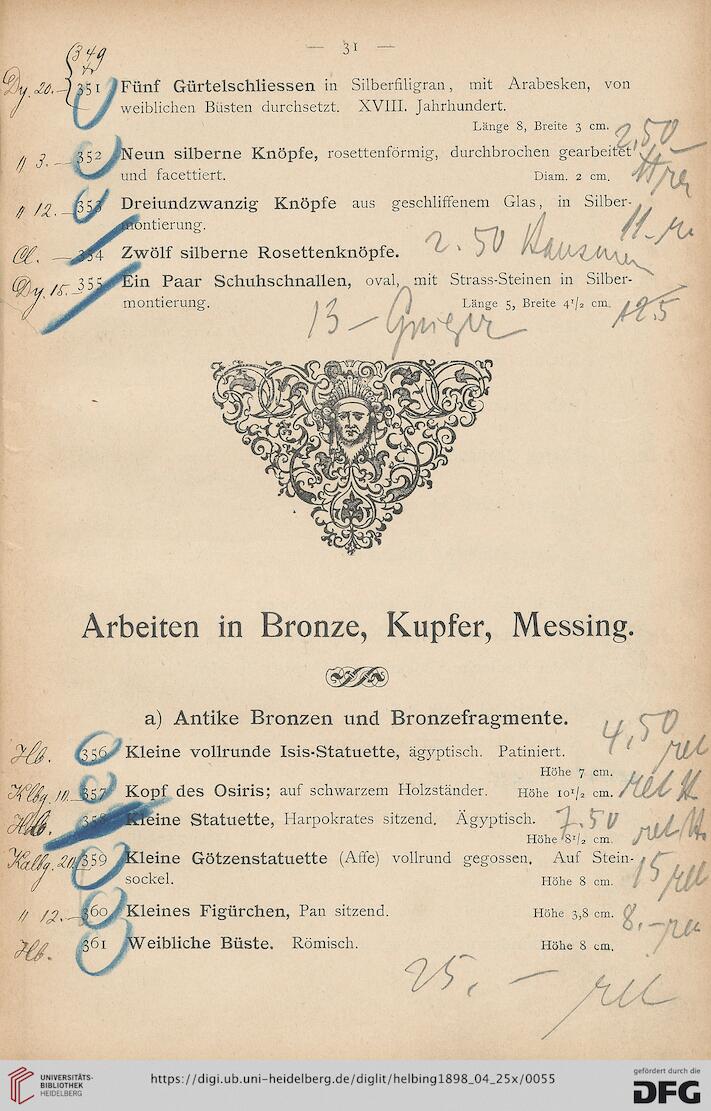 — 31 —
349
Dy. 20.— 351 Fünf Gürtelschliessen in Silberfiligran, mit Arabesken, von
weiblichen Büsten durchsetzt. XVIII. Jahrhundert.
Länge 8, Breite 3 cm.
2,50
" 3.— 352 Neun silberne Knöpfe, rosettenförmig, durchbrochen gearbeitet
und facettiert. Diam. 2 cm.
" 12.— 353 Dreiundzwanzig Knöpfe aus geschliffenem Glas, in Silber-
montierung. 11.-
Cl. — 354 Zwölf silberne Rosettenknöpfe. 2.50
Dy. 15. 355 Ein Paar Schuhschnallen, oval, mit Strass-Steinen in Silber-
montierung. Länge 5, Breite 4¹/₂ cm. 125
13 –
Arbeiten in Bronze, Kupfer, Messing.
a) Antike Bronzen und Bronzefragmente.
4,50
Hlb. 356 Kleine vollrunde Isis-Statuette, ägyptisch. Patiniert.
Höhe 7 cm. rel
Klbg. 10. 357 Kopf des Osiris; auf schwarzem Holzständer. Höhe 10¹/₂ cm. rel
Hlb. 358 Kleine Statuette, Harpokrates sitzend. Ägyptisch. 7.50
Höhe 8¹/₂ cm. rel
Kalbg. 20. 359 Kleine Götzenstatuette (Affe) vollrund gegossen. Auf Stein-
sockel. Höhe 8 cm. 15 rel
" 12.— 360 Kleines Figürchen, Pan sitzend. Höhe 3,8 cm. 8.— rel
Hlb. 361 Weibliche Büste. Römisch. Höhe 8 cm.
25. — rel
UNIVERSITÄTS-
BIBLIOTHEK
HEIDELBERG
https://digi.ub.uni-heidelberg.de/diglit/helbing1898_04_25x/0055
gefördert durch die
DFG